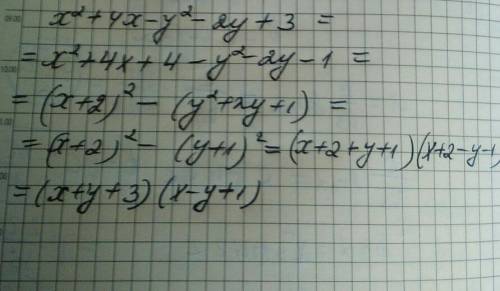 x²+4x-y²-2y+3 =
= x²+4x+4-y²-2y-1 =
= (x+2)² - (y²+2y+1) =
= (x+2)² - (y+1)² = (x+2+y+1)(x+2-y-1)
= (x+y+3)(x-y+1)